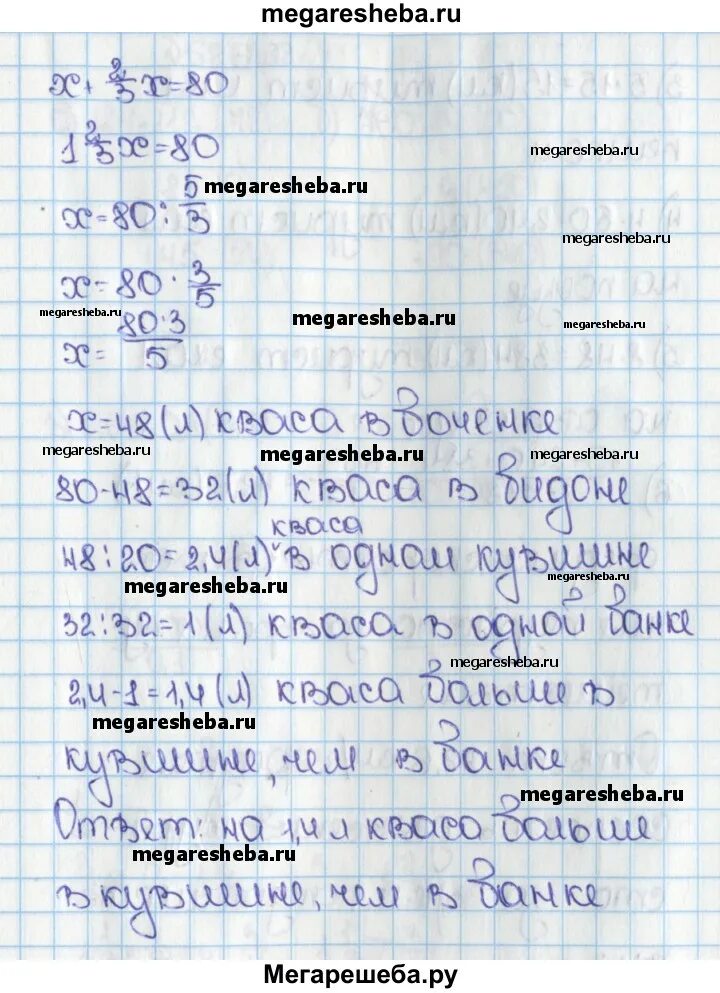 megaresheba.ru
x + 2/3 x = 80
1 2/3 x = 80
megaresheba.ru
x = 80 : 5/3
megaresheba.ru
megaresheba.ru
x = 80 · 3/5
megaresheba.ru
megaresheba.ru
megaresheba.ru
x = 80·3/5
x = 48 (л) кваса в боченке
megaresheba.ru
megaresheba.ru
80-48=32(л) кваса в бидоне
кваса
48:20=2,4(л) в одном кувшине
megaresheba.ru
megaresheba.ru
32:32=1(л) кваса в одной банке
megaresheba.ru
2,4-1=1,4(л) кваса больше в
megaresheba.ru
кувшине, чем в банке
megaresheba.ru
Ответ: на 1,4 л кваса больше
megaresheba.ru
в кувшине, чем в банке
Мегарешеба.ру